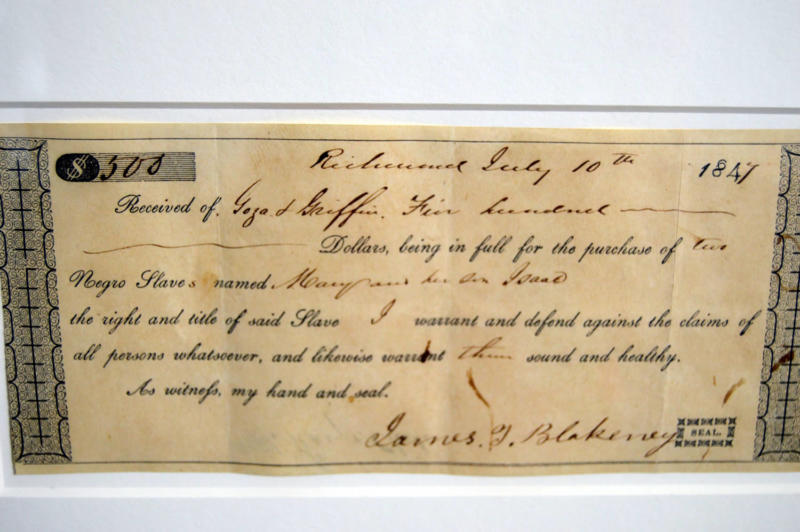 $500 Richmond July 10th 1847
Received of Goza & Griffin Five hundred
Dollars, being in full for the purchase of two
Negro Slaves named Mary and her son Isaac
the right and title of said Slave I warrant and defend against the claims of
all persons whatsoever, and likewise warrant them sound and healthy.
As witness, my hand and seal.
James. T. Blakeney SEAL.